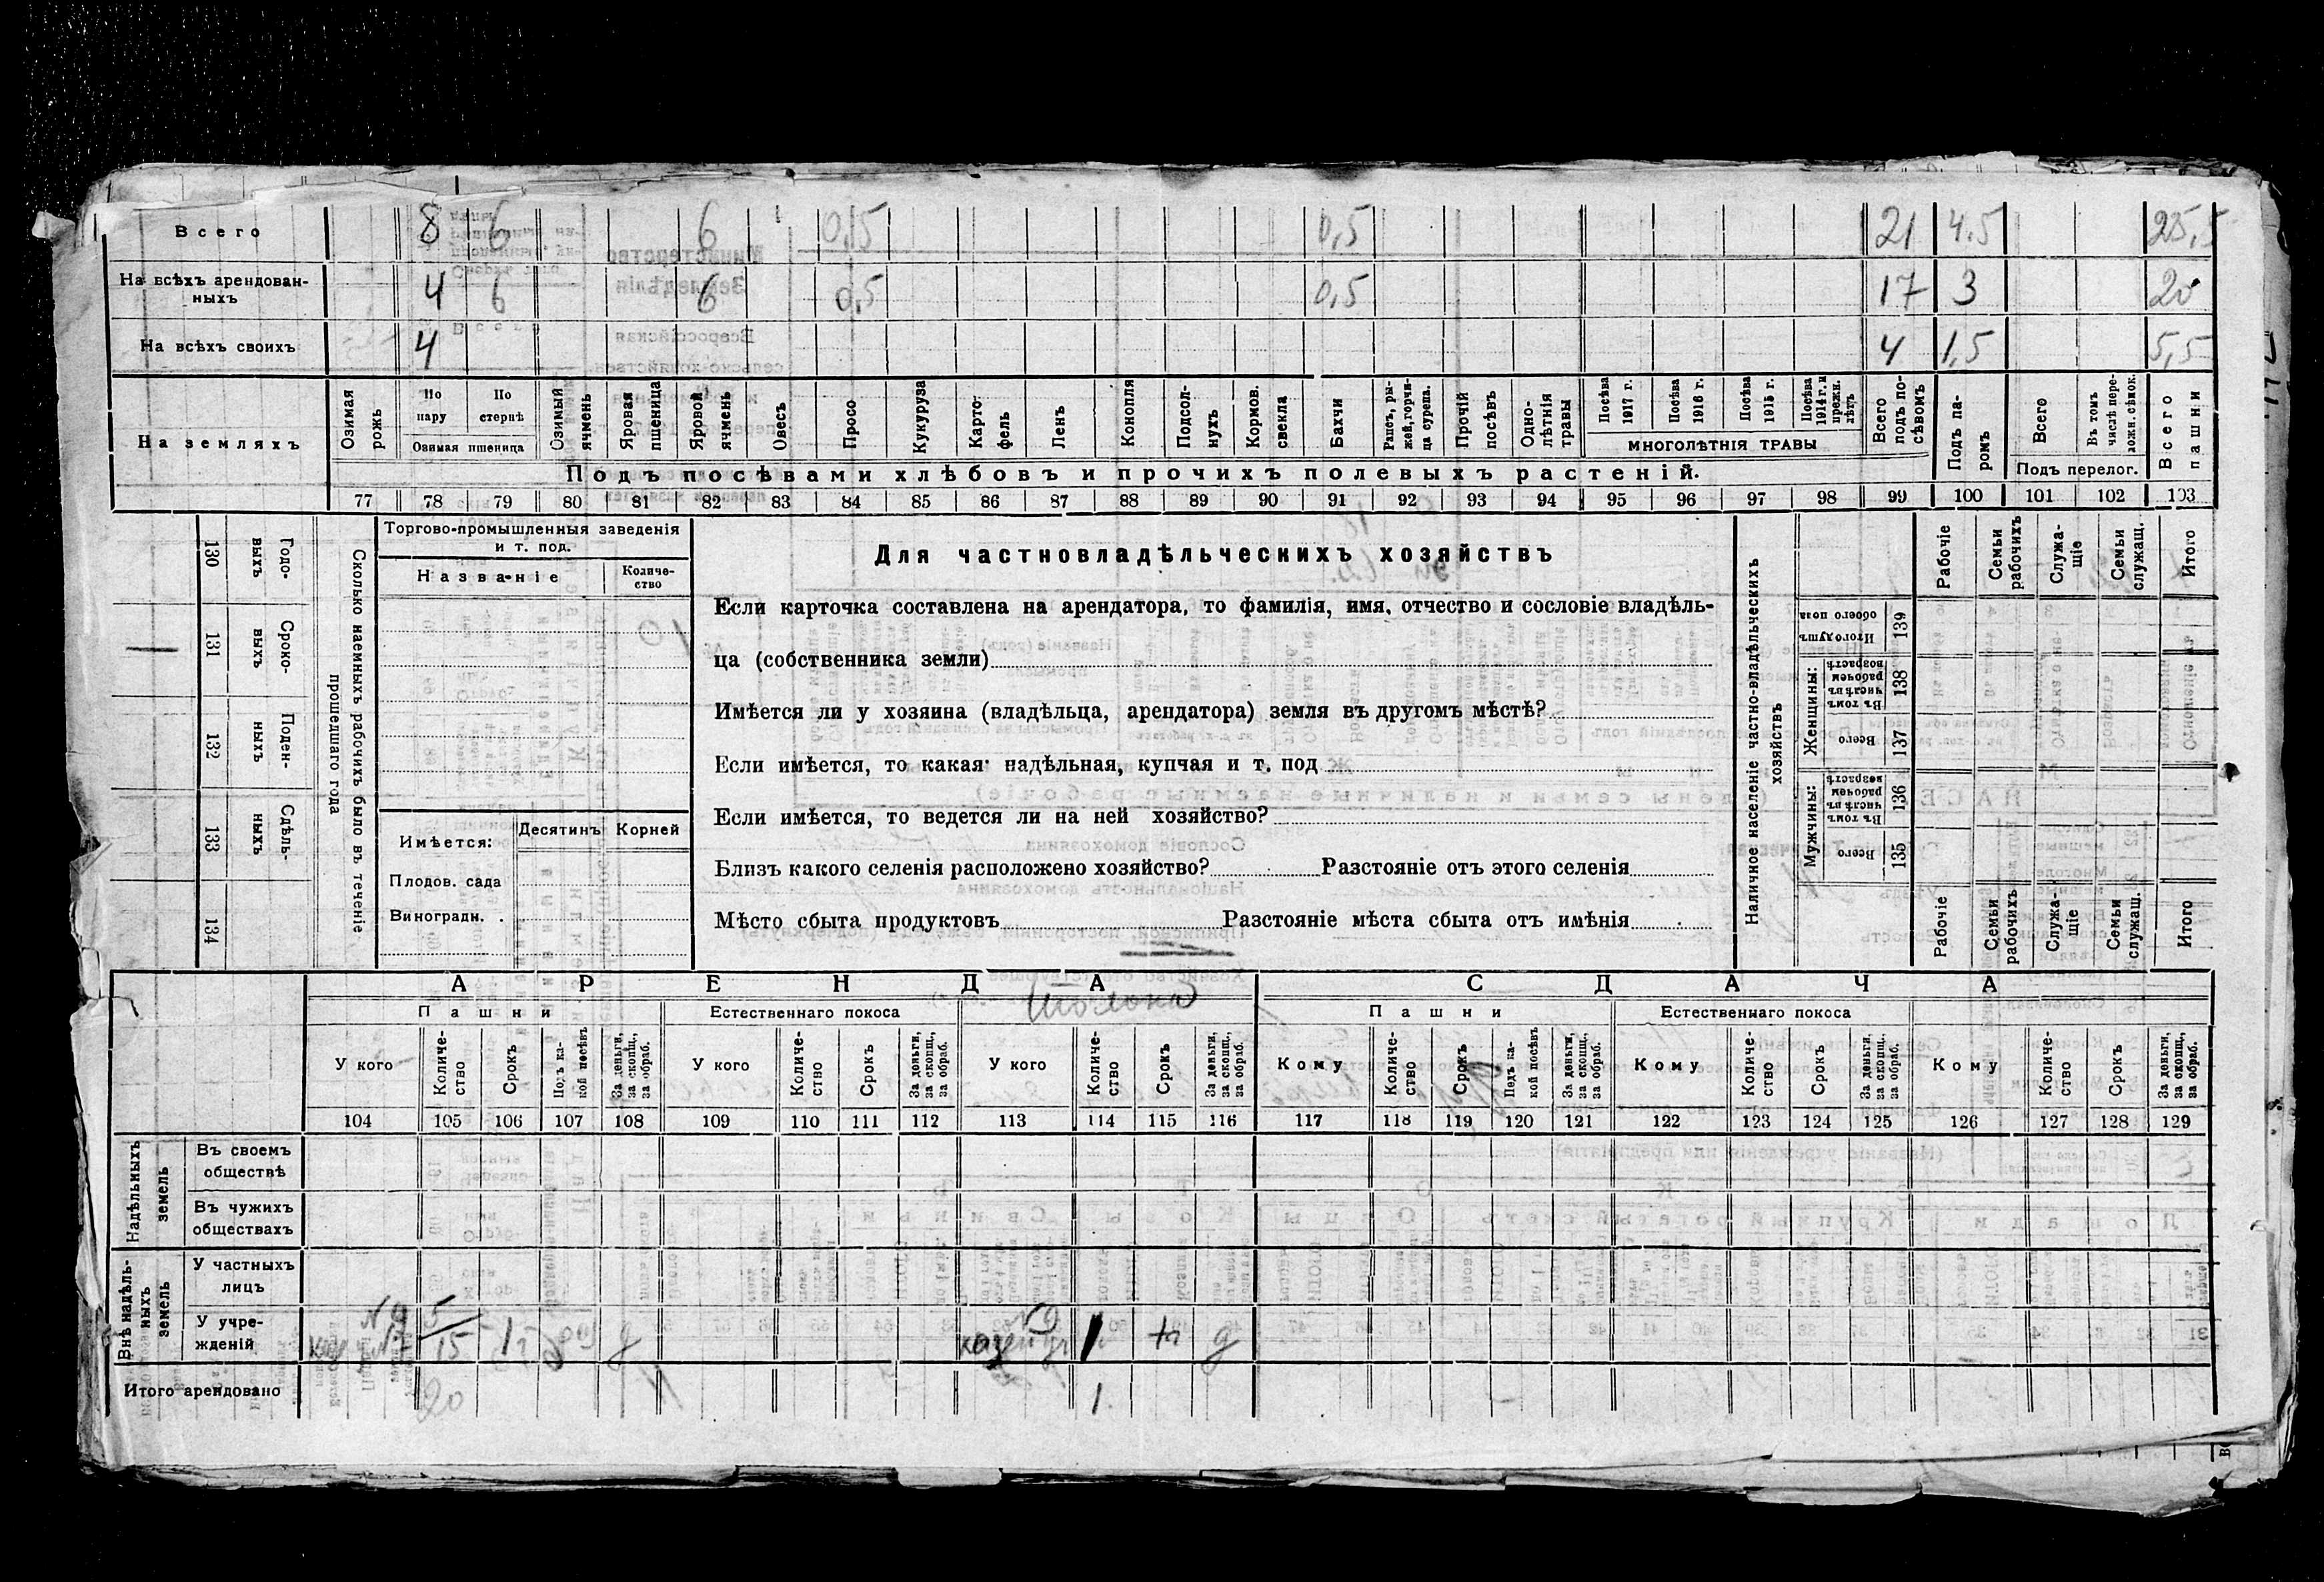 Всего 8 6 6 0,5 0,5 21 4.5 25,5
На всѣхъ арендован-
ныхъ 4 6 6 0,5 0,5 17 3 20
На всѣхъ своихъ 4 4 1,5 5,5
На земляхъ
Озимая рожь
По пару
По стернѣ
Озимая пшеница
Озимый ячмень
Яровая пшеница
Яровой ячмень
Овесъ
Просо
Кукуруза
Карто-
фель
Ленъ
Конопля
Подсол-
нухъ
Кормов.
свекла
Бахчи
Рапсъ, ры-
жей, горчи-
ца сурепа.
Прочій
посѣвъ
Одно-
лѣтнія
травы
Посѣва
1917 г.
Посѣва
1916 г.
Посѣва
1915 г.
Посѣва
1914 г. и
прежн.
лѣтъ
МНОГОЛѢТНІЯ ТРАВЫ
Всего
подъ по-
сѣвомъ
Подъ па-
ромъ
Всего
Въ томъ
числѣ пере-
ложн. сѣнок.
Подъ перелог.
Всего
пашни
Подъ посѣвами хлѣбовъ и прочихъ полевыхъ растеній.
77 78 79 80 81 82 83 84 85 86 87 88 89 90 91 92 93 94 95 96 97 98 99 100 101 102 103
Сколько наемныхъ рабочихъ было въ теченіе
прошедшаго года
Годо-
выхъ
130
Сроко-
выхъ
131
Поден-
ныхъ
132
Сдѣль-
ныхъ
133
134
Торгово-промышленныя заведенія
и т. под.
Названіе
Количе-
ство
Имѣется:
Десятинъ
Корней
Плодов. сада
Виноградн. .
Для частновладѣльческихъ хозяйствъ
Если карточка составлена на арендатора, то фамилія, имя, отчество и сословіе владѣль-
ца (собственника земли)
Имѣется ли у хозяина (владѣльца, арендатора) земля въ другомъ мѣстѣ?
Если имѣется, то какая: надѣльная, купчая и т. под
Если имѣется, то ведется ли на ней хозяйство?
Близъ какого селенія расположено хозяйство? Разстояніе отъ этого селенія
Мѣсто сбыта продуктовъ Разстояніе мѣста сбыта отъ имѣнія
Наличное населеніе частно-владѣльческихъ
хозяйствъ
Рабочіе
Семьи
рабочихъ
Служа-
щіе
Семьи
служащ.
Итого
Итого душъ
обоего пола
139
Женщины:
Въ томъ
числѣ въ
рабочемъ
возрастѣ
138
Всего
137
Мужчины:
Въ томъ
числѣ въ
рабочемъ
возрастѣ
136
Всего
135
Рабочіе
Семьи
рабочихъ
Служа-
щіе
Семьи
служащ.
Итого
АРЕНДА
СДАЧА
Пашни
Естественнаго покоса
Пашни
Естественнаго покоса
У кого
Количе-
ство
Срокъ
Подъ ка-
кой посѣвъ
За деньги,
за скопщ.,
за обраб.
У кого
Количе-
ство
Срокъ
За деньги,
за скопщ.,
за обраб.
У кого
Количе-
ство
Срокъ
За деньги,
за скопщ.,
за обраб.
Кому
Количе-
ство
Срокъ
Подъ ка-
кой посѣвъ
За деньги,
за скопщ.,
за обраб.
Кому
Количе-
ство
Срокъ
За деньги,
за скопщ.,
за обраб.
Кому
Количе-
ство
Срокъ
За деньги,
за скопщ.,
за обраб.
104 105 106 107 108 109 110 111 112 113 114 115 116 117 118 119 120 121 122 123 124 125 126 127 128 129
Надѣльныхъ
земель
Въ своемъ
обществѣ
Въ чужихъ
обществахъ
Внѣ надѣль-
ныхъ
земель
У частныхъ
лицъ
У учре-
жденій
5
15 д 1 д
Итого арендовано 20 1